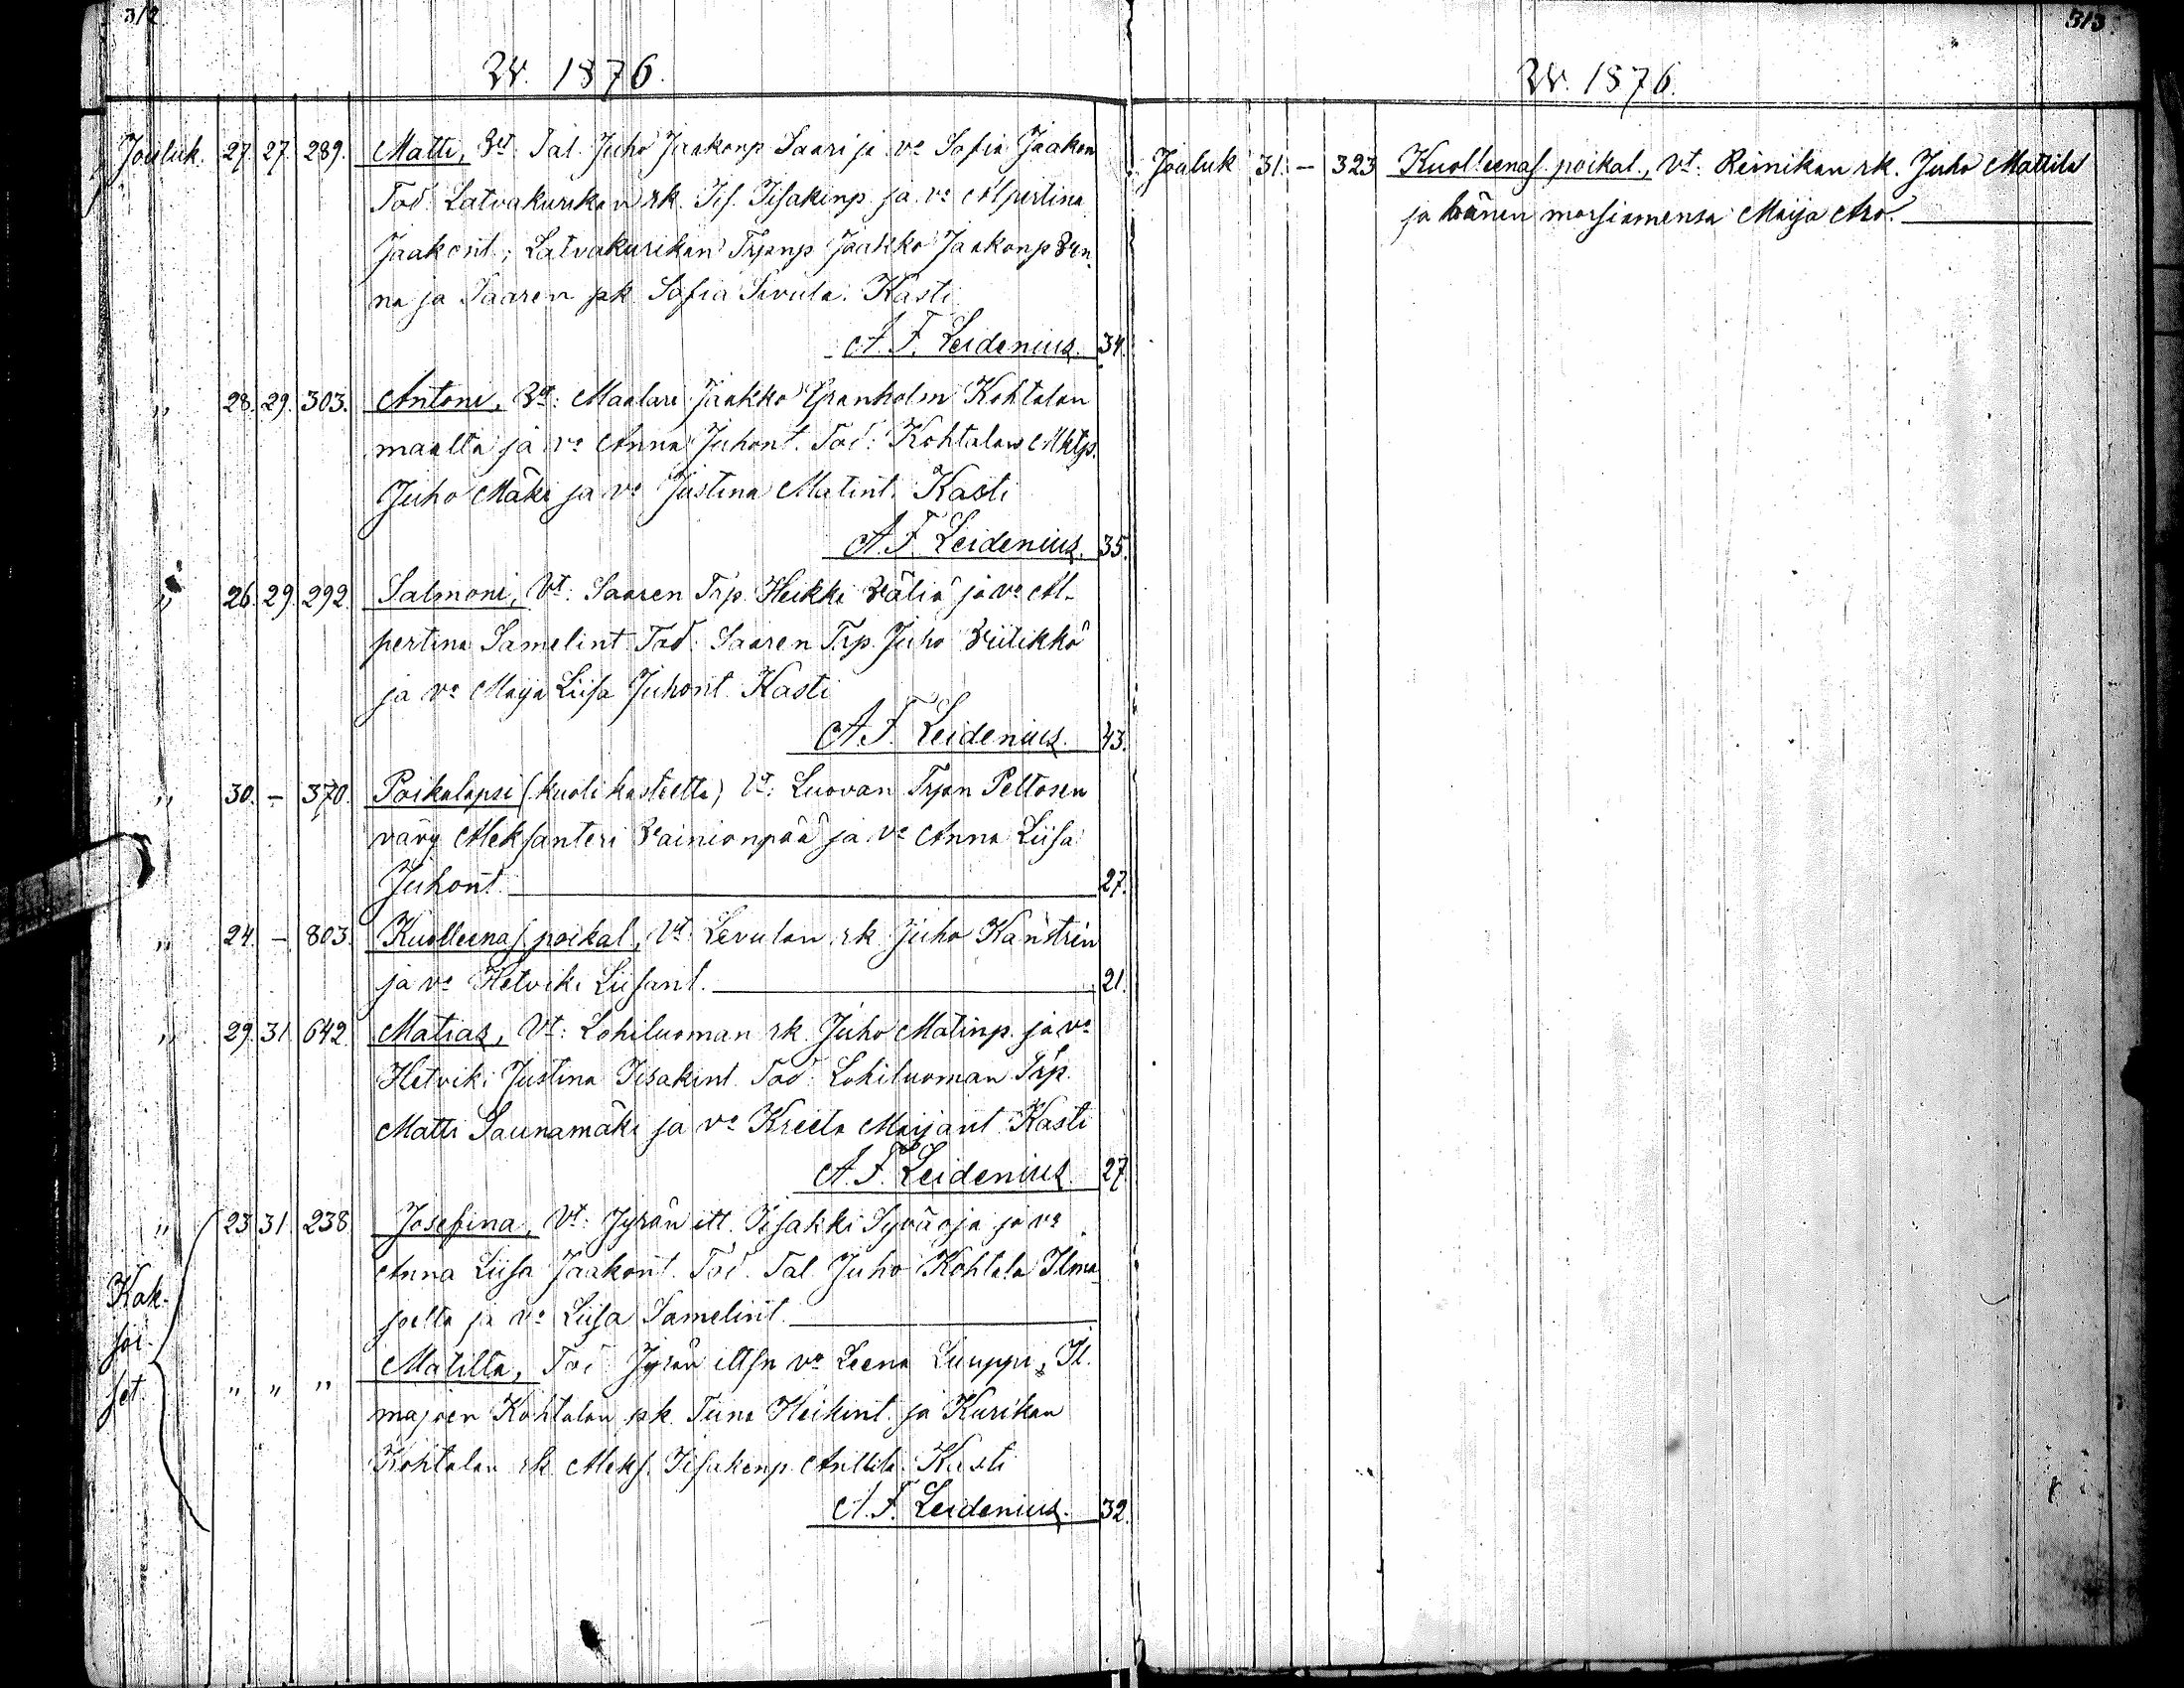 312
V. 1876.
Jouluk. 27. 27. 289. Matti, Vt. Tal. Juho Jaakonp. Saari ja vo Sofia Jaakon
Tod. Latvakurikan rk. Iis. Iisakinp. ja vo Alpertina
Jaakont.; Latvakurikan Trpnp Jaakko Jaakonp
na ja Saaren pk. Sofia Sivula. Kasti
A. F. Leidenius. 34.
" 28. 29. 303. Antoni, Vt: Maalari Jaakko Granholm Kohtalan
maalta ja vo Anna Juhont. Tod: Kohtalan Mktp.
Juho Mäki ja vo Justina Matint. Kasti
A. F. Leidenius. 35.
" 26. 29. 292. Salmoni, Vt: Saaren Trp. Heikki Väliä ja vo Al-
pertina Samelint. Tod: Saaren Trp. Juho Viitikko
ja vo Maija Liisa Juhont. Kasti
A. F. Leidenius. 43.
" 30. – 370. Poikalapsi (kuoli kasteetta) Vt: Luovan Trpn Peltosen
vävy Aleksanteri Vainionpää ja vo Anna Liisa
Juhont. 27.
" 24. – 803. Kuolleenas. poikal., Vt: Levulan rk. Juho Kanströn
ja vo Hetviki Liisant. 21.
" 29. 31. 642. Matias, Vt: Lohiluoman rk. Juho Matinp. ja vo
Hetviki Justina Iisakint. Tod: Lohiluoman Trp.
Matti Saunamäki ja vo Kreeta Maijant. Kasti
A. F. Leidenius. 27.
" 23. 31. 238. Josefina, Vt: Jyrän itt. Iisakki Syväoja ja vo
Anna Liisa Jaakont. Tod. Tal. Juho Kohtala Ilma
joelta ja vo Liisa Samelint.
Kak-
soi-
set.
" " " Matilta, Tod: Jyrän vo Leena Luuppi, Il-
majoen Kohtalan pk. Tiina Heikint. ja Kurikan
Kohtalan rk. Aleks. Iisakinp. Anttila. Kasti
A. F. Leidenius. 32.
313
V. 1876.
Jouluk 31. – 323 Kuolleenas. poikal., Vt: Reinikan rk. Juho Mattila
ja hänen morsiamensa Maija Aro.